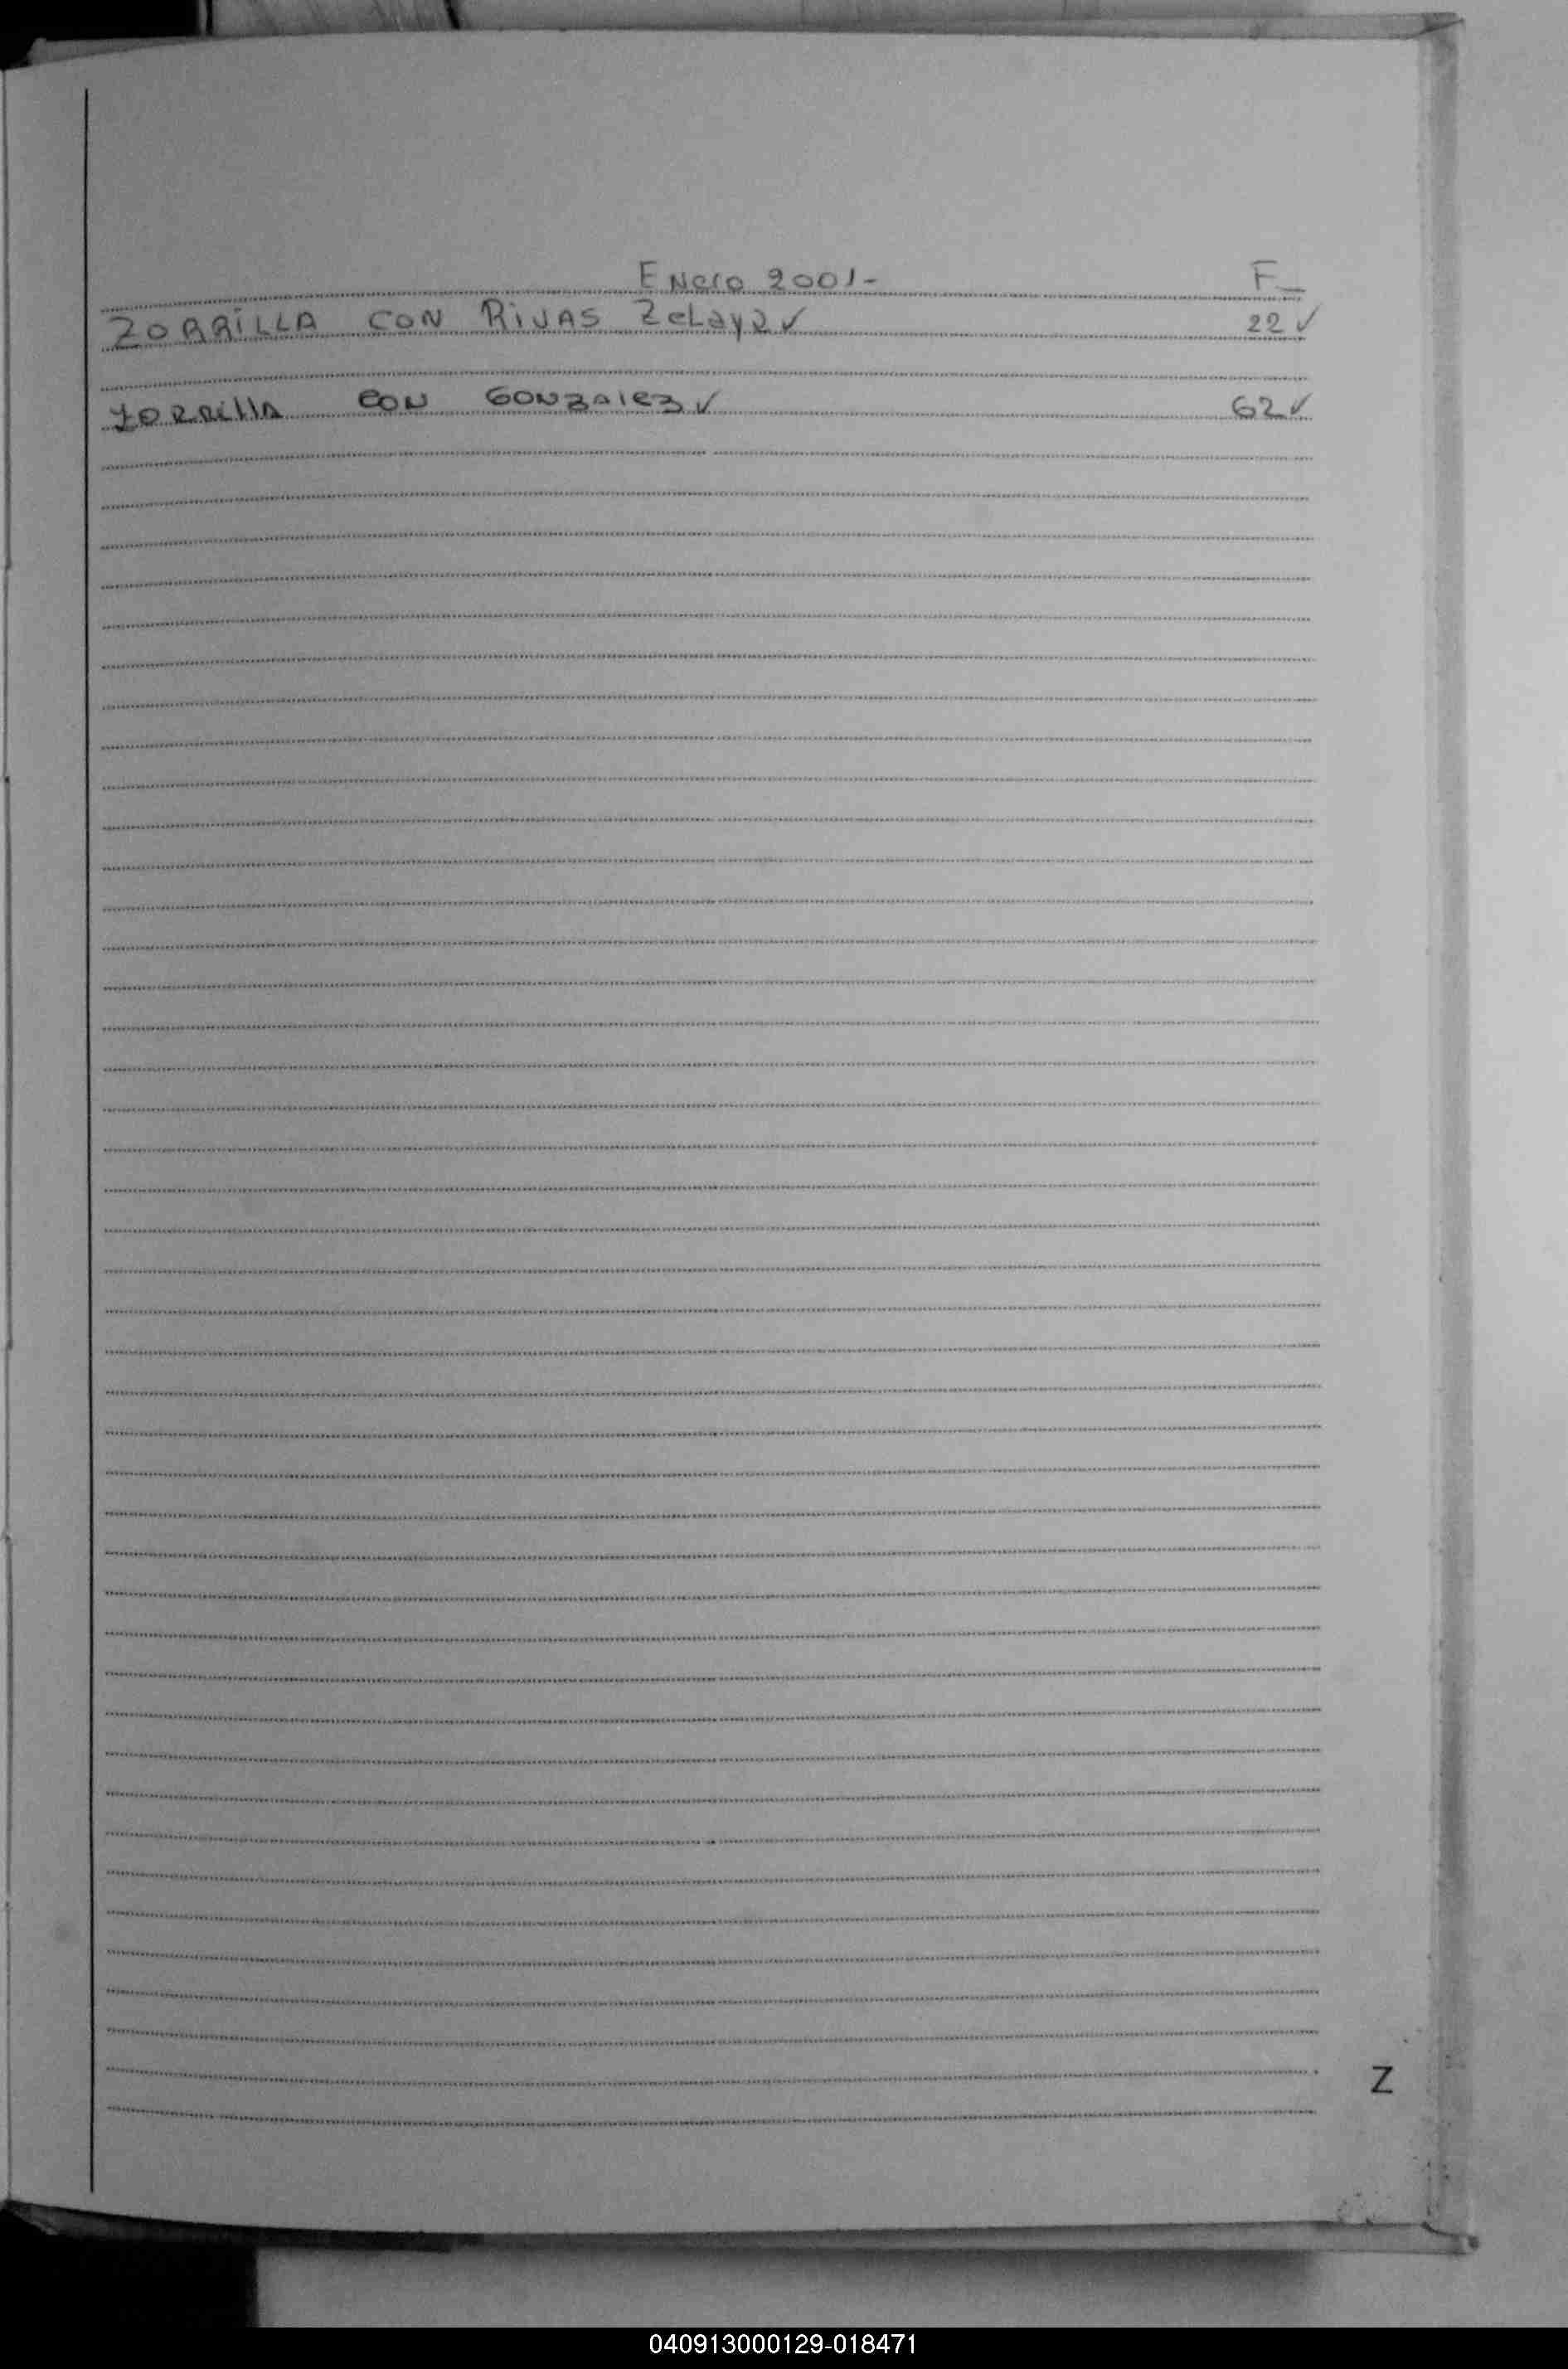 Enero 2001- F_
ZORRILLA CON RiVAS Zelaya ✓ 22 ✓
ZORRillA CON GONzalez ✓ 62 ✓
Z
040913000129-018471